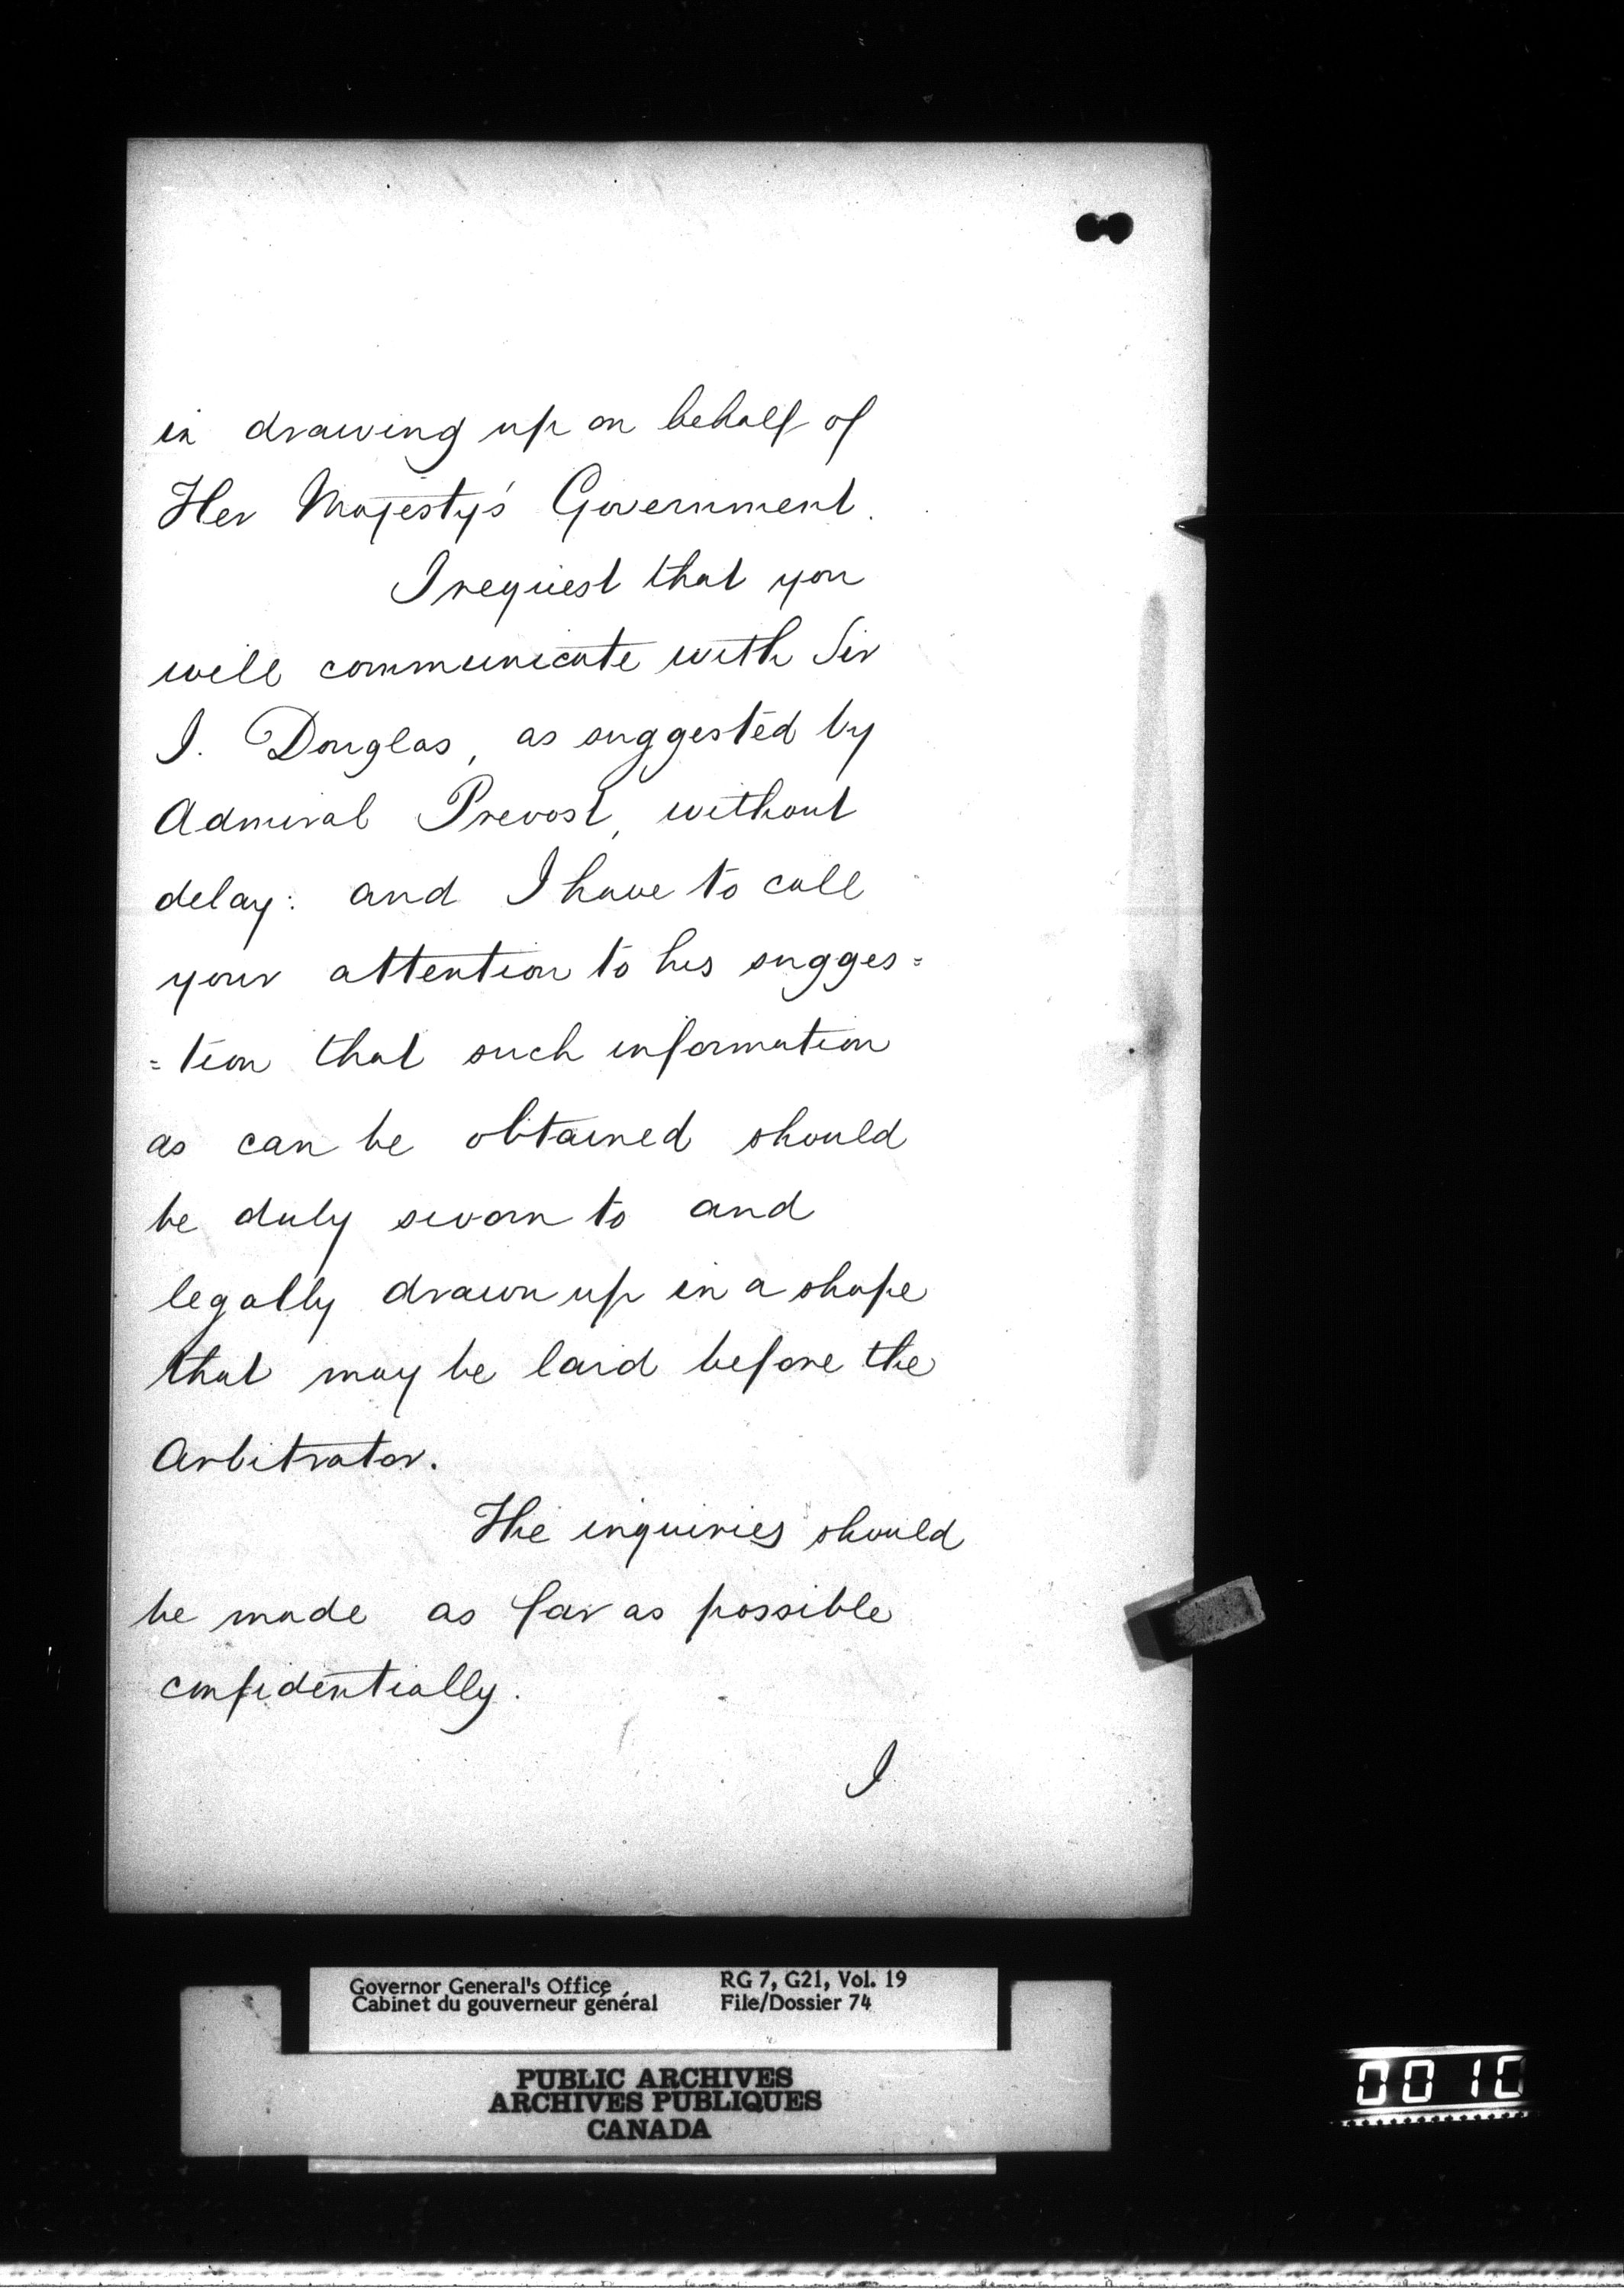 in drawing up on behalf of
Her Majesty's Government.
I request that you
will communicate with Sir
J. Douglas, as suggested by
Admiral Prevost, without
delay: and I have to call
your attention to his sugges=
=tion that such information
as can be obtained should
be duly sworn to and
legally drawn up in a shape
that may be laid before the
Arbitrator.
The inquiries should
be made as far as possible
confidentially.
I
Governor General's Office
Cabinet du gouverneur général
RG 7, G21, Vol. 19
File/Dossier 74
PUBLIC ARCHIVES
ARCHIVES PUBLIQUES
CANADA
0010